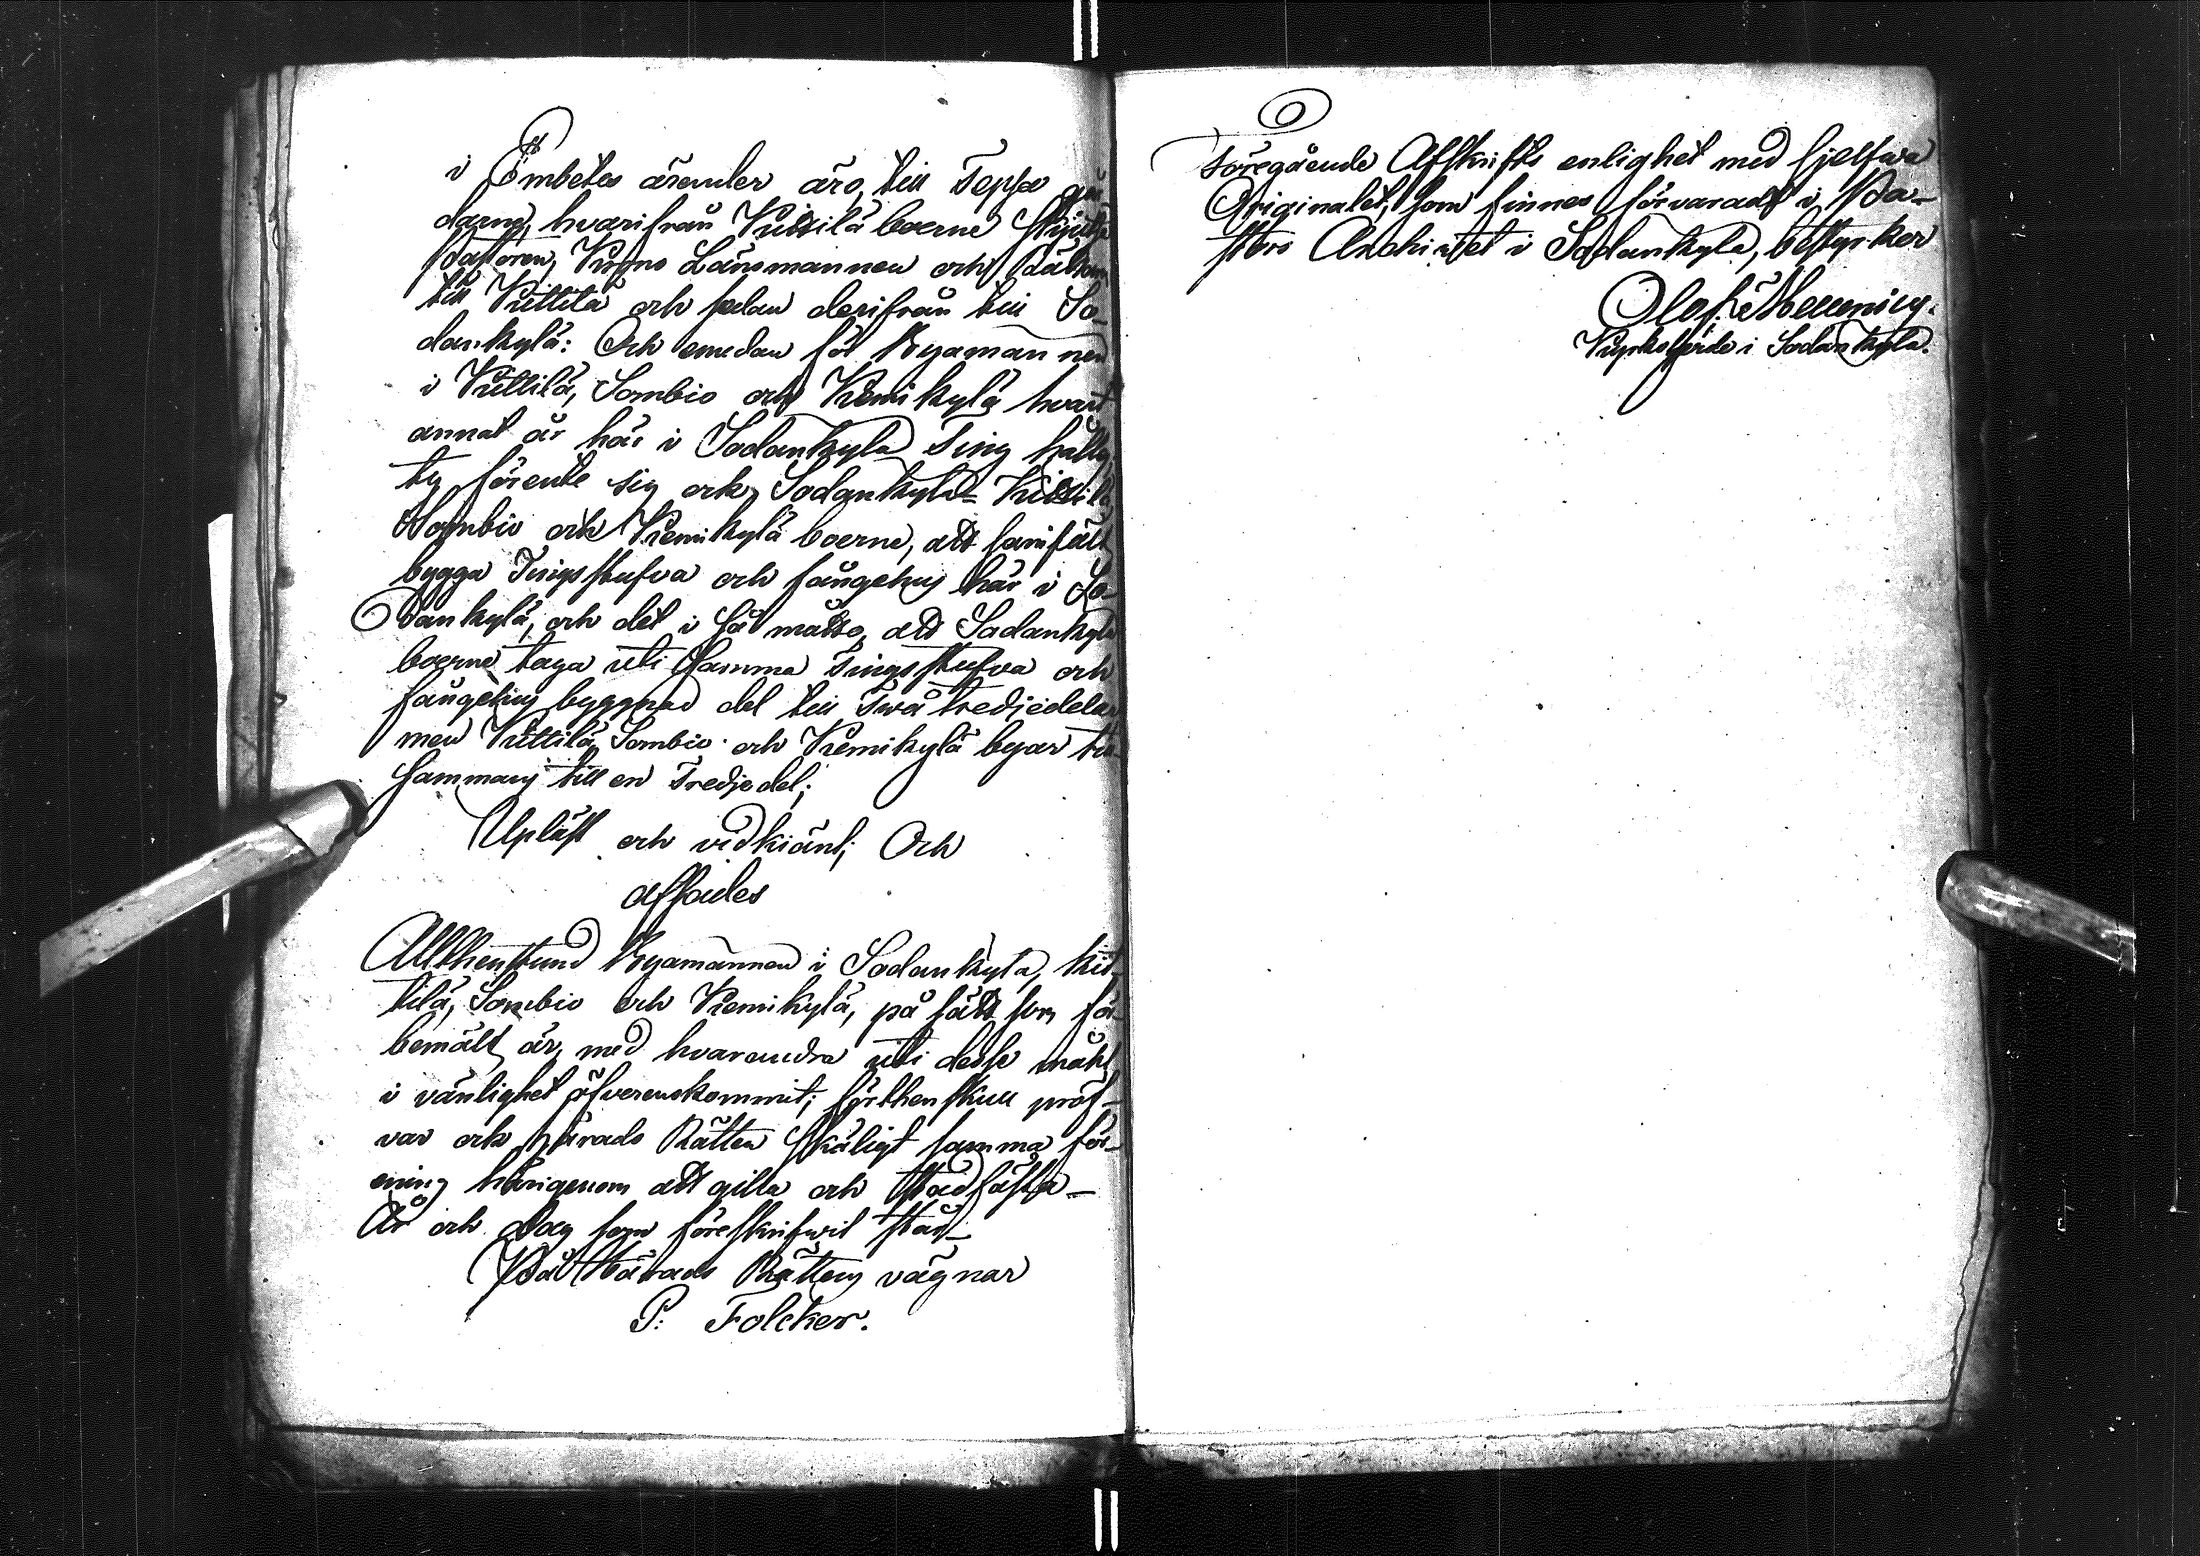 i Embetes ärender äro, till Teppa gå
darne, hvarifrån Kittilä boerne skjutsa
Pastoren, Krono Länsmannen och Rätten
till Kittilä och sedan derifrån till So-
dankylä: Och emedan för Byamännen
i Kittilä, Sombio och Kemikylä hvart
annat år här i Sodankylä Ting hålles,
ty förente sig ock Sodankylä- Kittilä
Sombio och Kemikylä boerne, att samfält
bygga Tingsstufva och fångehus här i So-
dankylä, och det i så måtto, att Sodankylä
boerne taga uti samma Tingsstufva och
fångehus byggnad del till Twå tredjedelar
men Kittilä, Sombio och Kemikylä byar till
sammans till en Tredjedel;
Upläst och vidkiänt; Och
afsades
Alldenstund Byamännen i Sodankylä, Kit-
tilä, Sombio och Kemikylä, på sätt som för-
bemält är, med hvarandra uti desse måhl
i vänlighet öfverenskommit; förthenskull pröf-
var ock Härads Rätten skäligt samma för-
ening härigenom att gilla och stadfästa_
År och dag som föreskrifwit står_
På Härads Rättens vägnar
P: Folcker.
Föregående Afskrifts enlighet med sjelfwa
Originalet, som finnes förvaradt i Pa-
stors Archivet i Sodankylä, bestyrker
Olof Mellenius.
Kyrkoherde i Sodankylä.